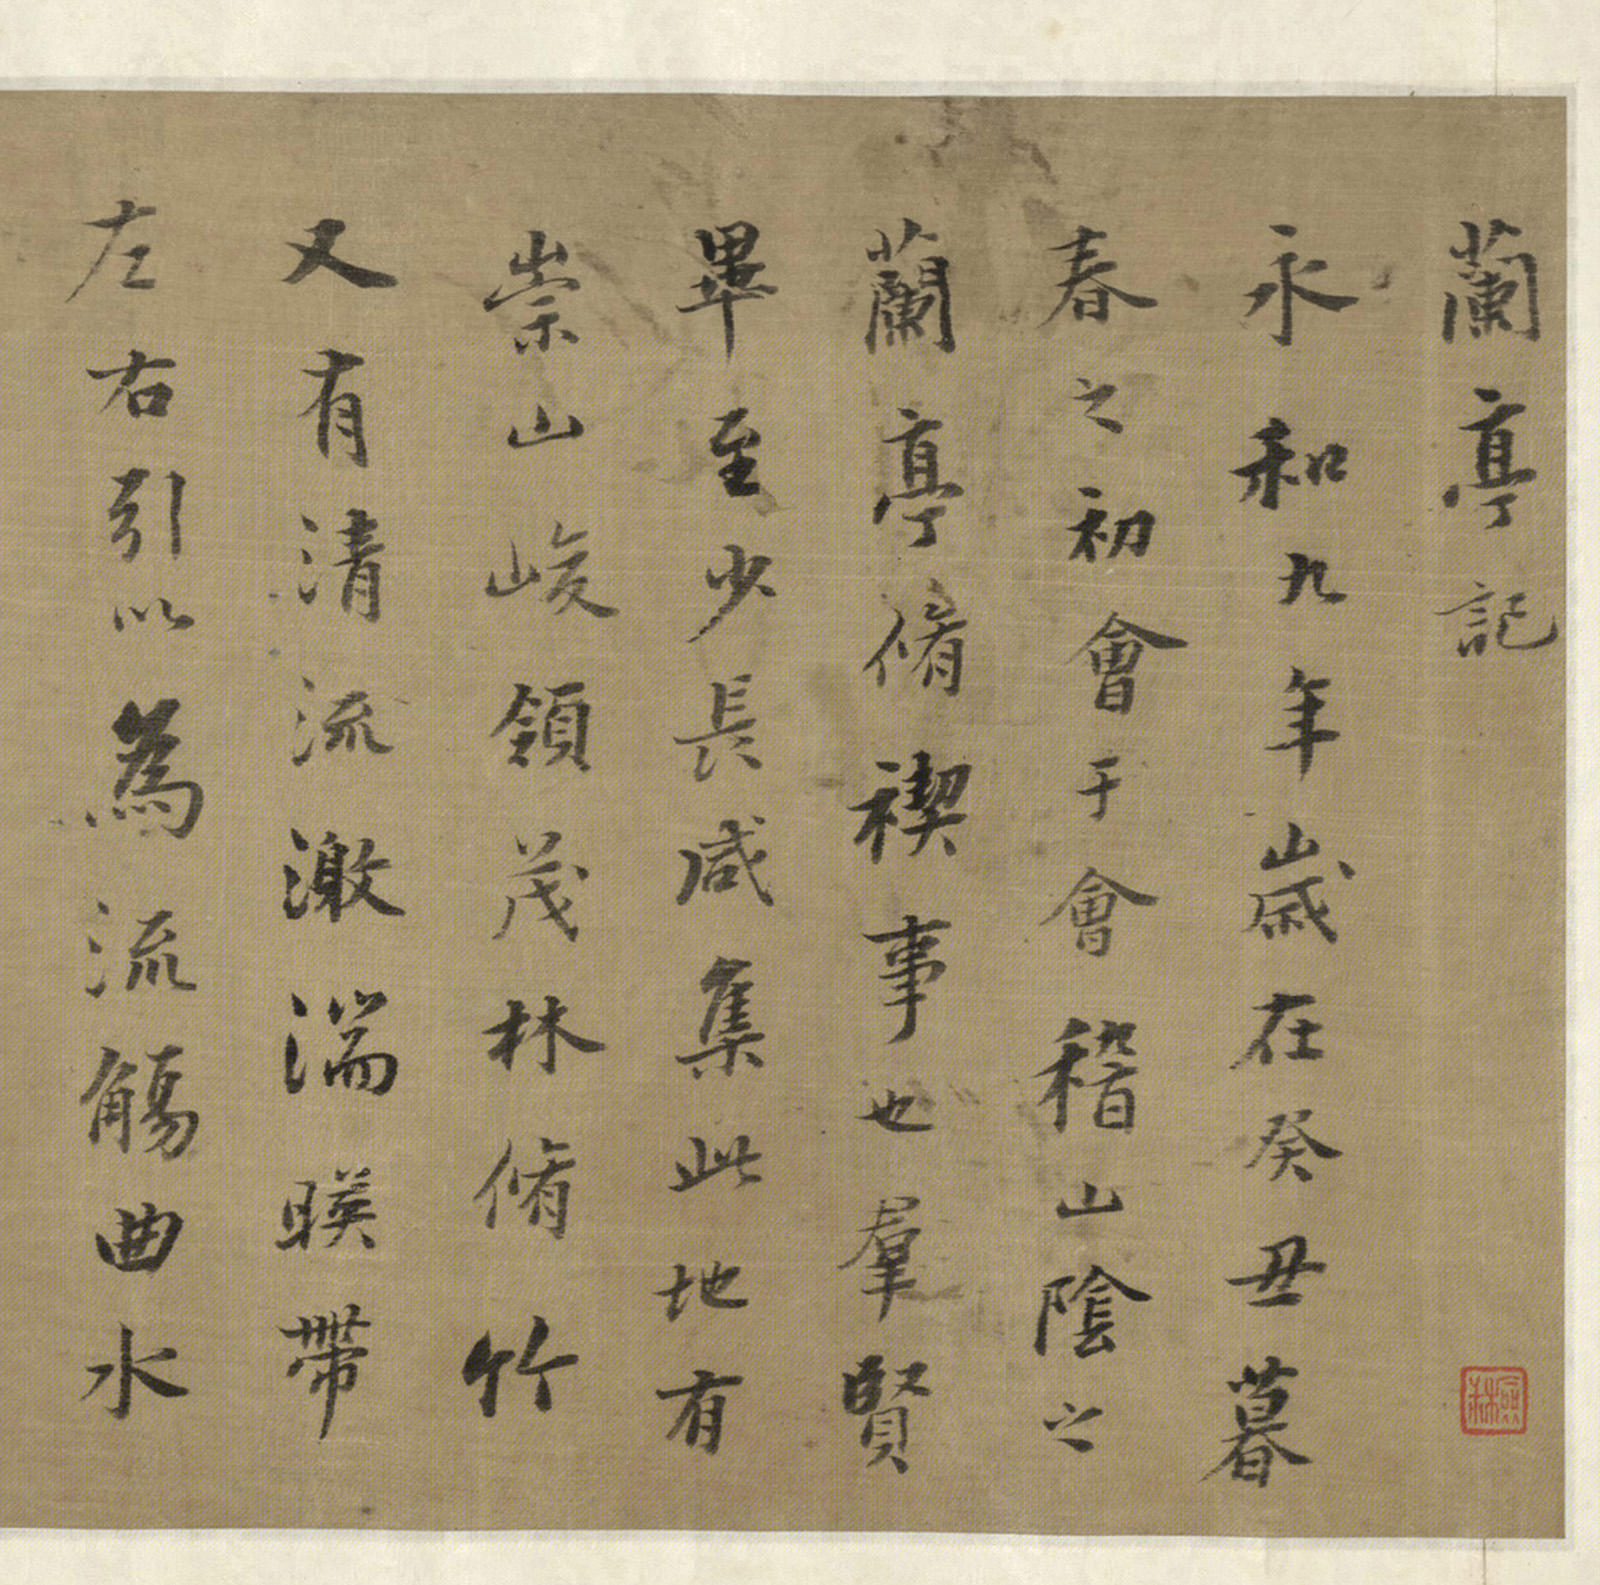 蘭亭記
永和九年歲在癸丑暮
春之初會于會稽山陰之
蘭亭脩禊事也羣賢
畢至少長咸集此地有
崇山峻領茂林脩竹
又有清流激湍暎帶
左右引以為流觴曲水